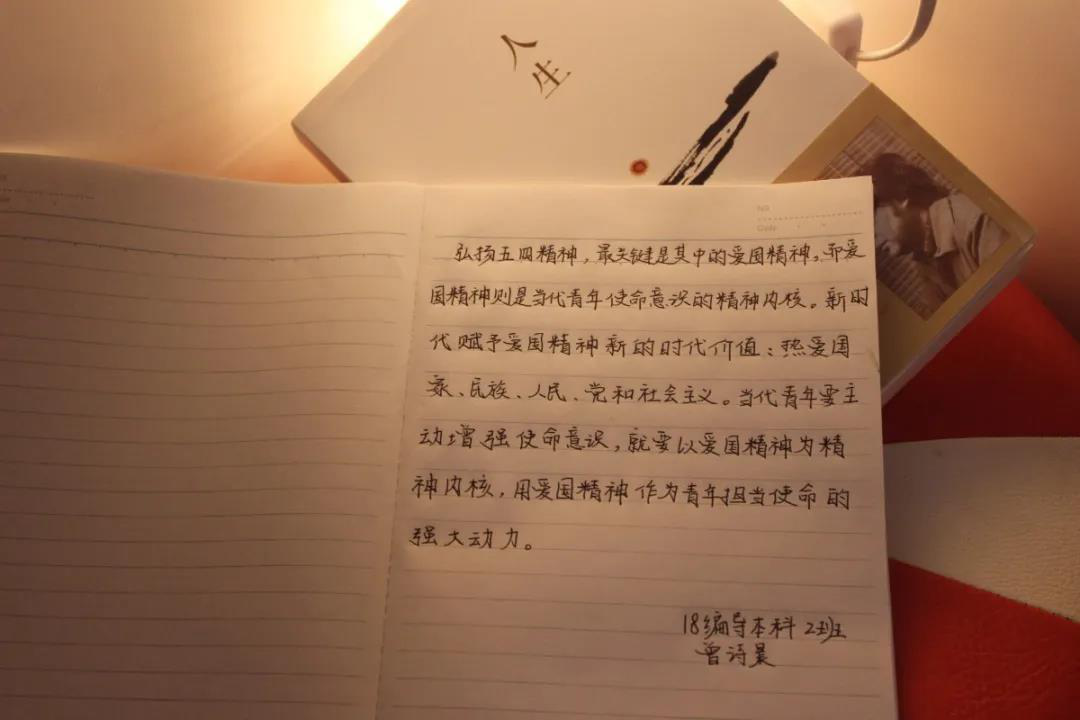 人生
No
Date
弘扬五四精神，最关键是其中的爱国精神。而爱
国精神则是当代青年使命意识的精神内核。新时
代赋予爱国精神新的时代价值：热爱国
家、民族、人民、党和社会主义。当代青年要主
动增强使命意识，就要以爱国精神为精
神内核，用爱国精神作为青年担当使命的
强大动力。
18编导本科2班
曾诗晨